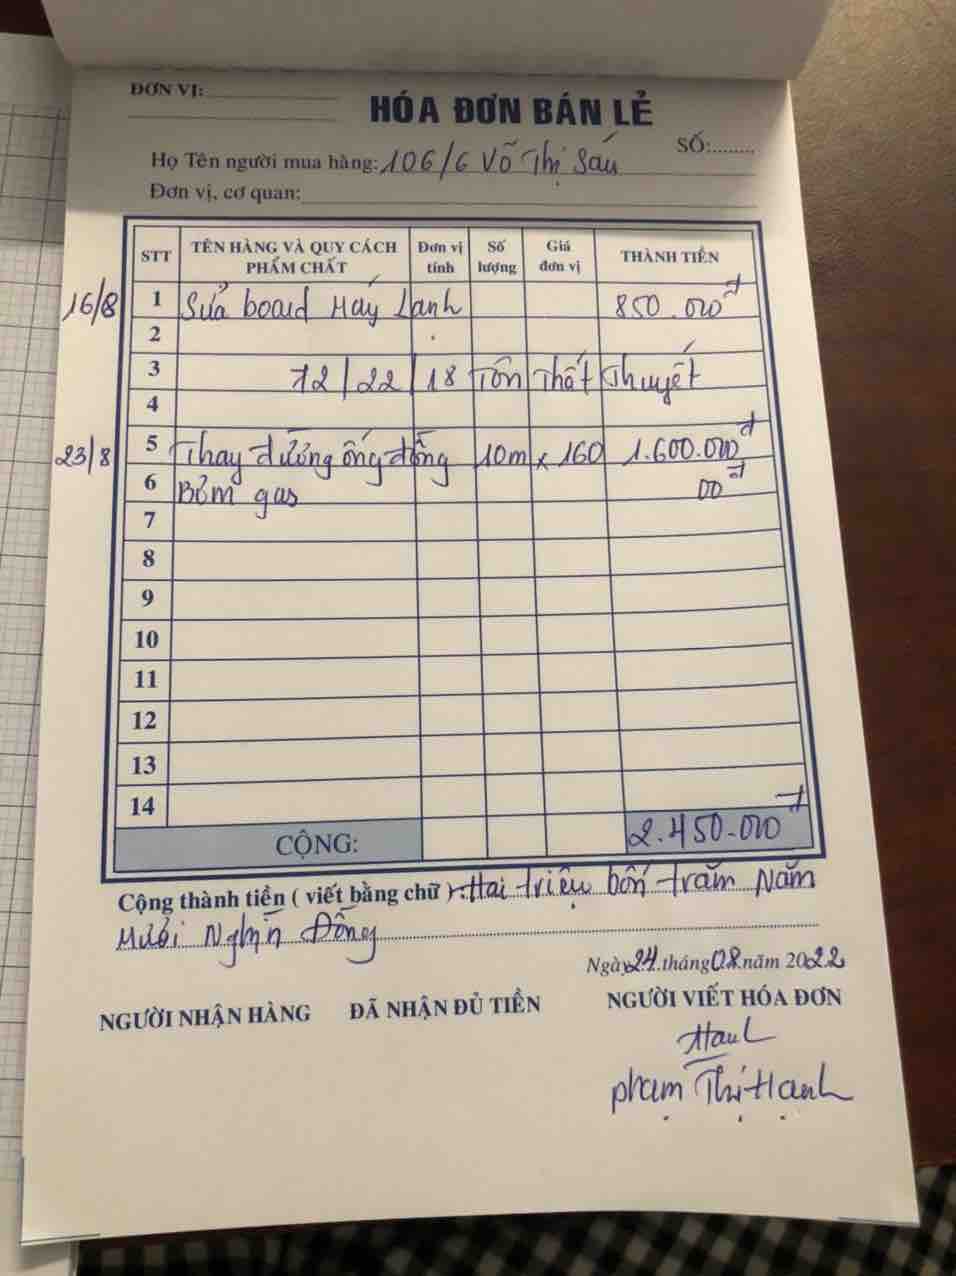 ĐƠN VỊ:
HÓA ĐƠN BÁN LẺ
SỐ:........
Họ Tên người mua hàng: 106/6 Võ Thị Sáu
Đơn vị, cơ quan:
STT TÊN HÀNG VÀ QUY CÁCH PHẨM CHẤT Đơn vị tính Số lượng Giá đơn vị THÀNH TIỀN
16/8 1 Sửa board Máy Lạnh 850.000đ
2
3 72/22/18 Tôn Thất Thuyết
4
23/8 5 Thay đường ống đồng 10m x 160 1.600.000đ
6 Bơm gas 00đ
7
8
9
10
11
12
13
14
CỘNG: 2.450.000đ
Cộng thành tiền ( viết bằng chữ ): Hai triệu bốn trăm Năm
Mươi Nghìn Đồng
Ngày 24 tháng 08 năm 2022
NGƯỜI NHẬN HÀNG ĐÃ NHẬN ĐỦ TIỀN NGƯỜI VIẾT HÓA ĐƠN
Phạm Thị Hạnh